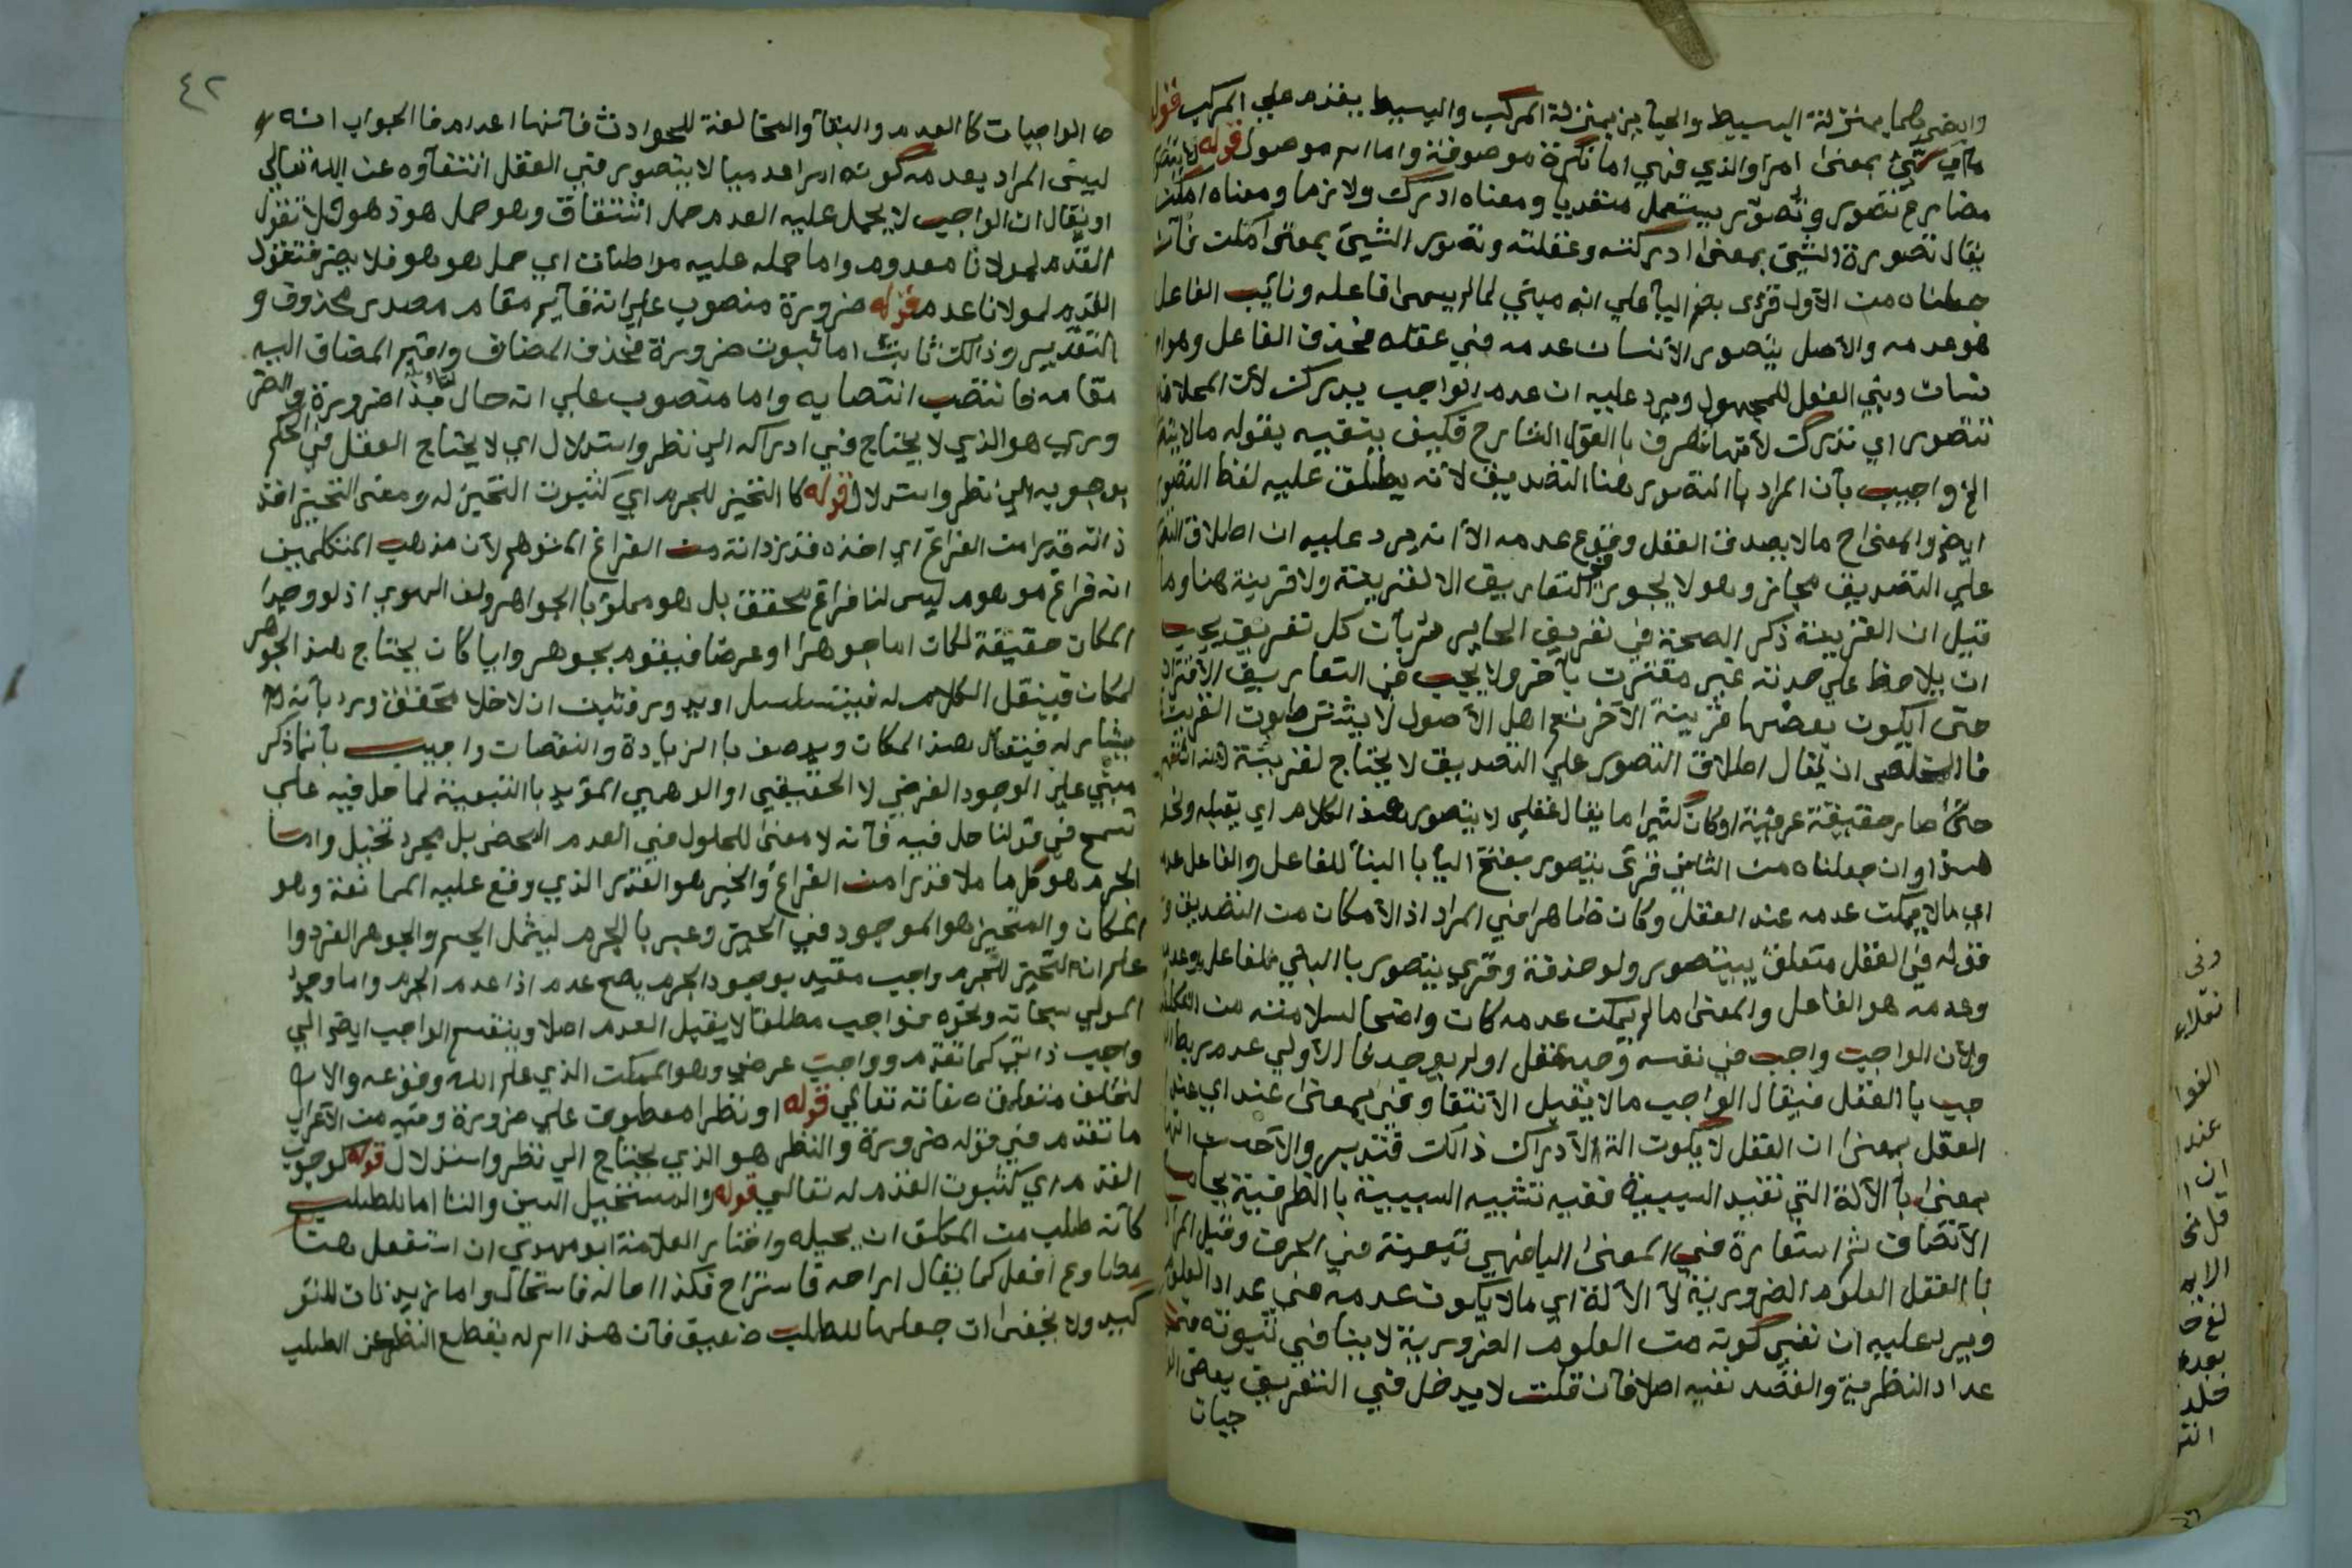 وايضا هما بمنزلة البسيط والجايز بمنزلة المركب والبسيط يقدم علي المركب قوله
ما اي شئ بمعنى امرا والذي فهي اما نكرة موصوفة واما اسم موصول قوله لا يتصور
مضارع تصور وتصور يستعمل متعديا ومعناه ادرك ولازما ومعناه امكن
يقال تصورة الشئ بمعنى ادركته وعقلته وتصور الشئ بمعنى امكن فان
جعلناه من الاول قرئ بضم اليا علي انه مبني لما لم يسمى فاعله ونائب الفاعل
هو عدمه والاصل يتصور الانسان عدمه في عقله فحذف الفاعل وهو الا
نسان وبني الفعل للمجهول ويرد عليه ان عدم الواجب يدرك لان المحلات
تتصور اي تدرك لانها تعرف باالقول الشارح فكيف ينفيه بقوله مالا يتصور
الخ واجيب بان المراد باالتصور هنا التصديق لانه يطلق عليه لفظ التصور
ايضا والمعنى ح مالا يصدق العقل وقوع عدمه الا انه يرد عليه ان اطلاق التصور
علي التصديق مجاز وهو لا يجوز في التعاريف الا لقرينة ولا قرينة هنا وما
قيل ان القرينة ذكر الصحة في تعريف الجايز رد بان كل تعريف يجب
ان يلاحظ علي حدته غير مقترن باخر ولا يجب في التعاريف الاقتران
حتى ايكون بعضها قرينة الاخر نعم اهل الاصول لا يشترطون القرينة
فاالمخلص ان يقال اطلاق التصور علي التصديق لا يحتاج لقرينة لانه اشتهر
حتى صار حقيقة عرفية وكان كثيرا ما يقال عقلي لا يتصور هذ الكلام اي يقبله ونحو
هذا وان جعلناه من الثاني قرئ يتصور بفتح اليا باالبنا للفاعل والفاعل عدمه
اي مالا يمكن عدمه عند العقل وكان ظاهرا في المراد اذ الامكان من التصديق و
قوله في العقل متعلق بيتصور ولو حذفه وقرئ يتصور باالبني للفاعل وعدمه
وعدمه هو الفاعل والمعنى مالم يمكن عدمه كان واضحا لسلامته من التكلف
ولان الواجب واجب في نفسه وجد عقل اولم يوجد فاالاولي عدم ربط الوا
جب باالعقل فيقال الواجب مالا يقبل الانتفا وفي بمعنى عند اي عند
العقل بمعنى ان العقل لا يكون الة الادراك ذالك فتدبر والاحسن انها
بمعنى با الالة التي تفيد السببية ففيه تشبيه السببية باالظرفية بجامع
الاتصاف ثم استعارة في المعنى اليا فهي تبعية في الحرف وقيل المراد
باالعقل العلوم الضرورية لا الالة اي مالا يكون عدمه في عداد العلوم
ويرد عليه ان نفي كونه من العلوم الضرورية لا ينافي ثبوته في
عداد النظرية والقصد نفيه اصلا فان قلت لا يدخل في التعريف بعض الوا
جبات
٤٢
ض الواجبات كاالقدم والبقا والمخالفة للحوادث فانها اعدام فاالجواب انه
ليس المراد بعدمه كونه امرا عدميا لا يتصور في العقل انتفاؤه عن الله تعالي
او يقال ان الواجب لا يحمل عليه العدم حمل اشتقاق وهو حمل هو ذ هو فلا تقول
القدم لمولانا معدوم واما حمله عليه مواطئات اي حمل هو هو فلا يضر فتقول
القدم لمولانا عدم قوله ضرورة منصوب علي انه قايم مقام مصدر محذوف و
التقدير وذالك ثابت اما ثبوت ضرورة فحذف المضاف واقيم المضاف اليه
مقامه فانتصب انتصابه واما منصوب علي انه حال ضرورة والضر
وري هو الذي لا يحتاج في ادراكه الي نظر واستدلال اي لا يحتاج العقل في الحكم
بوجوبه الي نظر واستدلال قوله كاالتحيز للجرم اي كثبوت التحيز له ومعنى التحيز اخذ
ذاته قدرا من الفراغ اي اخذه قدر ذاته من الفراغ المتوهم لان مذهب المتكلمين
انه فراغ موهوم ليس لنا فراغ محقق بل هو مملؤ باالجواهر ولف الهوي اذ لو وجدا
المكان حقيقة لكان اما جوهرا او عرضا فيقوم بجوهر وايا كان يحتاج هذ الجوهر
لمكان فينقل الكلام له فيتسلسل او يدور فثبت ان لا خلا محقق ورد بانه
يشار له فيقال هذ المكان ويوصف باالزيادة والنقصان واجيب بانما ذكر
مبني علي الوجود الفرضي لا الحقيقي او الوهمي المؤيد باالتبعية لما حل فيه علي
تسمح في قولنا حل فيه فانه لا معنى للحلول في العدم المحض بل مجرد تخيل واما
الجرم هو كل ما ملا قدرا من الفراغ والحيز هو القدر الذي وقع عليه الممانعة وهو
المكان والمتحيز هو الموجود في الحيز وعبر باالجرم ليشمل الجسم والجوهر الفرد وا
علم ان التحيز للجرم واجب مقيد بوجود الجرم يصح عدم اذا عدم الجرم واما وجود
المولي سبحانه ونحوه فواجب مطلقا لا يقبل العدم اصلا وينقسم الواجب ايضا الي
واجب ذاتي كما تقدم وواجب عرضي وهو الممكن الذي علم الله وقوعه والا
لتخلف متعلق صفاته تعالي قوله او نظرا معطوف علي ضرورة وفيه من الاعراب
ما تقدم في قوله ضرورة والنظر هو الذي يحتاج الي نظر واستدلال قوله كوجوب
القدم اي كثبوت القدم له تعالي قوله والمستحيل السين والتا اما للطلب
كانه طلب من المكلف ان يحيله واختار العلامة ابو مهدي ان استفعل هنا
مطاوع افعل كما يقال اراحه فاستراح فكذا احاله فاستحال واما زيدتان للتو
كيد ولا يخفى ان جعلها للطلب ضعيف فان هذ اسم له يقطع النظر عن الطلب
وفي
الفوا
عندا
ان
الايه
بعده